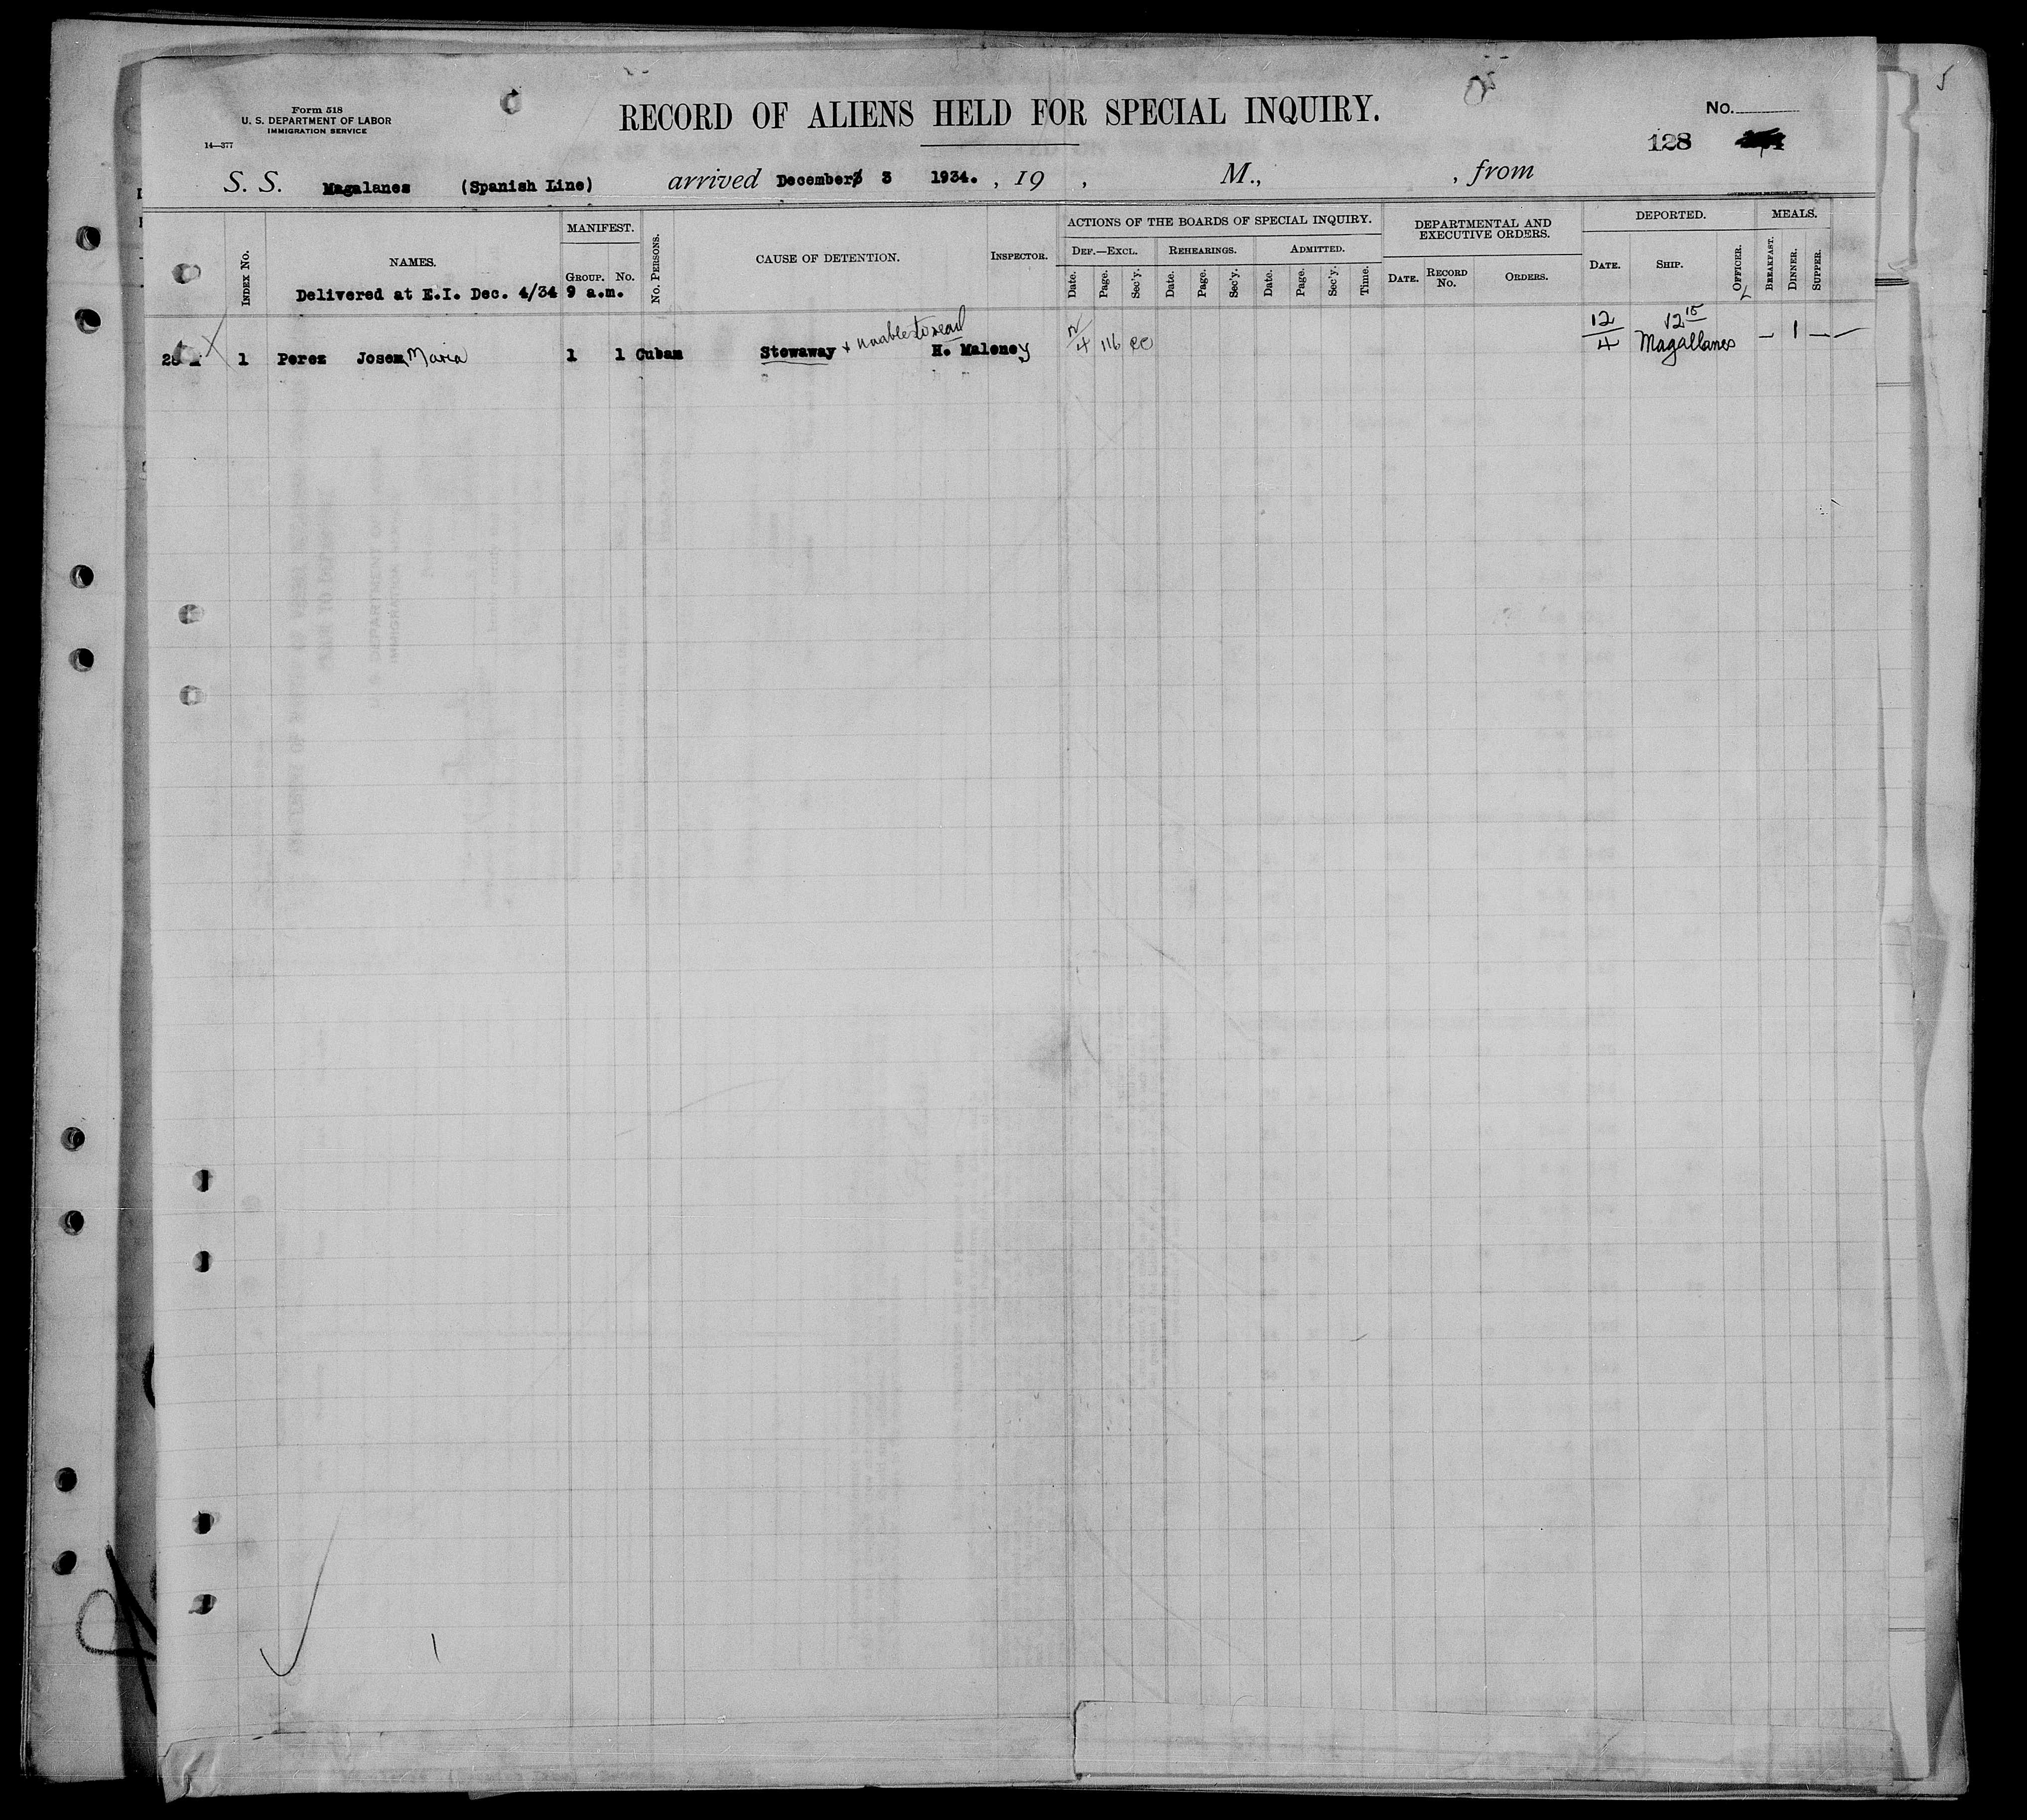 Form 518
U. S. DEPARTMENT OF LABOR
IMMIGRATION SERVICE
14—377
RECORD OF ALIENS HELD FOR SPECIAL INQUIRY.
No.
128
5
S. S. Magalanes (Spanish Line) arrived December 3 1934. , 19 , M., , from
INDEX No.
NAMES.
MANIFEST.
GROUP. No.
No. PERSONS.
CAUSE OF DETENTION.
INSPECTOR.
ACTIONS OF THE BOARDS OF SPECIAL INQUIRY.
DEF.—EXCL. REHEARINGS. ADMITTED.
Date. Page. Sec'y. Date. Page. Sec'y. Date. Page. Sec'y. Time.
DEPARTMENTAL AND EXECUTIVE ORDERS.
DATE. RECORD No. ORDERS.
DEPORTED.
DATE. SHIP. OFFICER.
MEALS.
BREAKFAST. DINNER. SUPPER.
Delivered at E.I. Dec. 4/34 9 a.m.
1 Perez Jose Maria 1 1 Cuban Stowaway + unable to read H. Maloney 12/4 116 12/4 12 15 Magallanes – 1 –
" " "
1